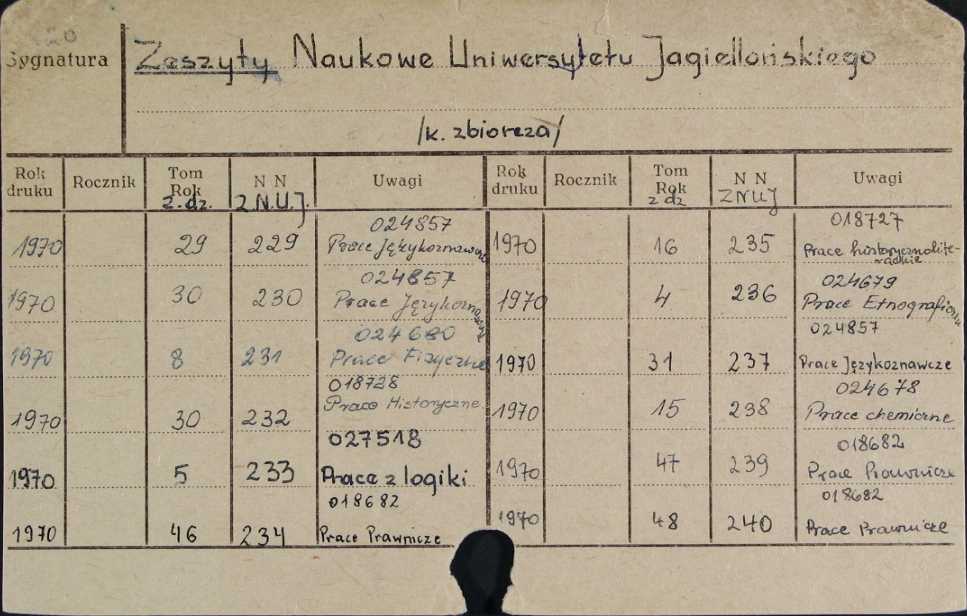 20
Sygnatura
Zeszyty Naukowe Uniwersytetu Jagiellońskiego
/k. zbiorcza/
Rok druku Rocznik Tom Rok z. dz. N N Z N.U.J. Uwagi
1970 29 229 024857 Prace Językoznawcze
1970 30 230 024857 Prace Językoznawcze
1970 8 231 024680 Prace Fizyczne
1970 30 232 018728 Prace Historyczne
1970 5 233 027518 Prace z logiki
1970 46 234 018682 Prace Prawnicze
Rok druku Rocznik Tom Rok z dz N N ZNUJ Uwagi
1970 16 235 018727 Prace historycznolite-
rackie
1970 4 236 024679 Prace Etnograficzne
1970 31 237 024857 Prace Językoznawcze
1970 15 238 024678 Prace chemiczne
1970 47 239 018682 Prace Prawnicze
1970 48 240 018682 Prace Prawnicze